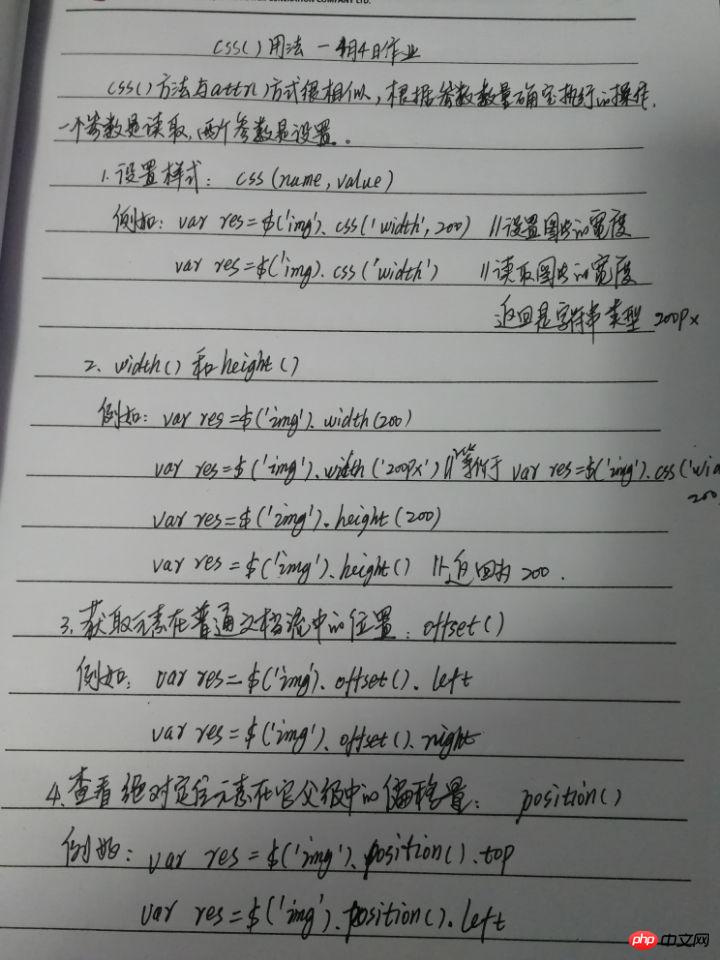 COMPANY LTD.
css()用法 — 4月4日作业
css()方法与attr()方式很相似，根据参数数量确定执行的操作.
一个参数是读取,两个参数是设置.
1.设置样式: css(name,value)
例如: var res=$('img').css('width',200) //设置图片的宽度
var res=$('img).css('width') //读取图片的宽度
返回是字符串类型 200px
2、width()和height()
例如: var res=$('img').width(200)
var res=$('img').width('200px') //等价于 var res=$('img').css('wid
200
var res=$('img').height(200)
var res=$('img').height() //返回为 200.
3.获取元素在普通文档流中的位置: offset()
例如: var res=$('img').offset().left
var res=$('img').offset().right
4.查看绝对定位元素在它父级中的偏移量: position()
例如: var res=$('img').position().top
var res=$('img').position().left
php 中文网